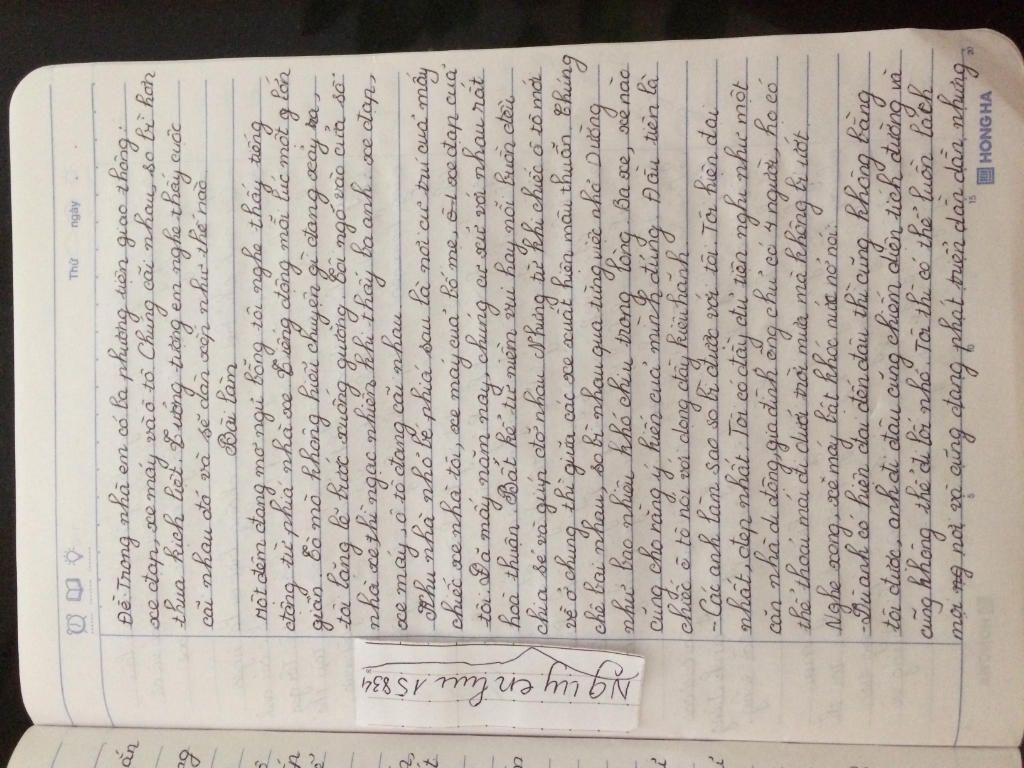 Thứ ngày
Đề: Trong nhà em có ba phương tiện giao thông:
xe đạp, xe máy và ô tô. Chúng cãi nhau, so bì hơn
thua kịch liệt. Tưởng tượng em nghe thấy cuộc
cãi nhau đó và sẽ dàn xếp như thế nào
Bài làm
Một đêm đang mơ ngủ bỗng tôi nghe thấy tiếng
động từ phía nhà xe. Tiếng động mỗi lúc một g lớn
gian. Tò mò không hiểu chuyện gì đang xảy ra,
tôi lẳng lẽ bước xuống giường. Tôi ngó vào cửa sổ
nhà xe thì ngạc nhiên khi thấy ba anh xe đạp,
xe máy, ô tô đang cãi nhau.
Khu nhà nhỏ bé phía sau là nơi cư trú của mấy
chiếc xe nhà tôi, xe máy của bố mẹ, ô tô xe đạp của
tôi. Đã mấy năm nay chúng cư xử với nhau rất
hoà thuận. Bất kể từ niềm vui hay nỗi buồn đều
chia sẻ và giúp đỡ nhau. Nhưng từ khi chiếc ô tô mới
về ở chung thì giữa các xe xuất hiện mâu thuẫn. Chúng
chê bai nhau, so bì nhau qua từng việc nhỏ. Dường
như bao nhiêu khó chịu trong lòng ba xe, xe nào
cũng cho rằng ý kiến của mình đúng. Đầu tiên là
chiếc ô tô nói với giọng đầy kiêu hãnh:
- Các anh làm sao so bì được với tôi. Tôi hiện đại
nhất, đẹp nhất. Tôi có đầy đủ tiện nghi như một
căn nhà di động, gia đình ông chủ có 4 người, họ có
thể thoải mái đi dưới trời mưa mà không bị ướt.
Nghe xong, xe máy bật khóc nức nở nói:
- Dù anh có hiện đại đến đâu thì cũng không bằng
tôi được, anh đi đâu cũng chiếm diện tích đường và
cũng không thể đi lối nhỏ. Tôi thì có thể luồn lách
mọi ng nơi và cũng đang phát triển dần dần, nhưng
5 10 15 20
HONG HA
Nguyenluu 15834